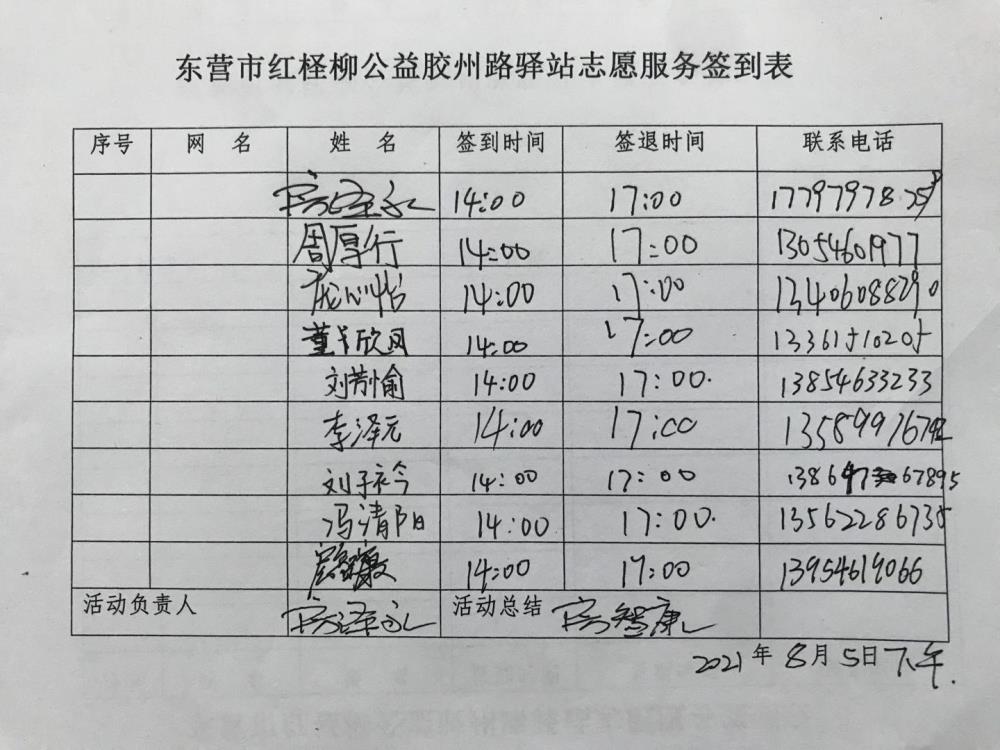 东营市红柽柳公益胶州路驿站志愿服务签到表
序号 网 名 姓 名 签到时间 签退时间 联系电话
14:00 17:00
周厚行 14:00 17:00 13054601977
庞心怡 14:00 17:00 13406088290
董 欣 14:00 17:00 13361510205
刘芳愉 14:00 17:00. 13854633233
李泽元 14:00 17:00
刘子衿 14:00 17:00
冯清阳 14:00 17:00. 13562286735
14:00 17:00 13954619066
活动负责人 活动总结
2021年8月5日下午.